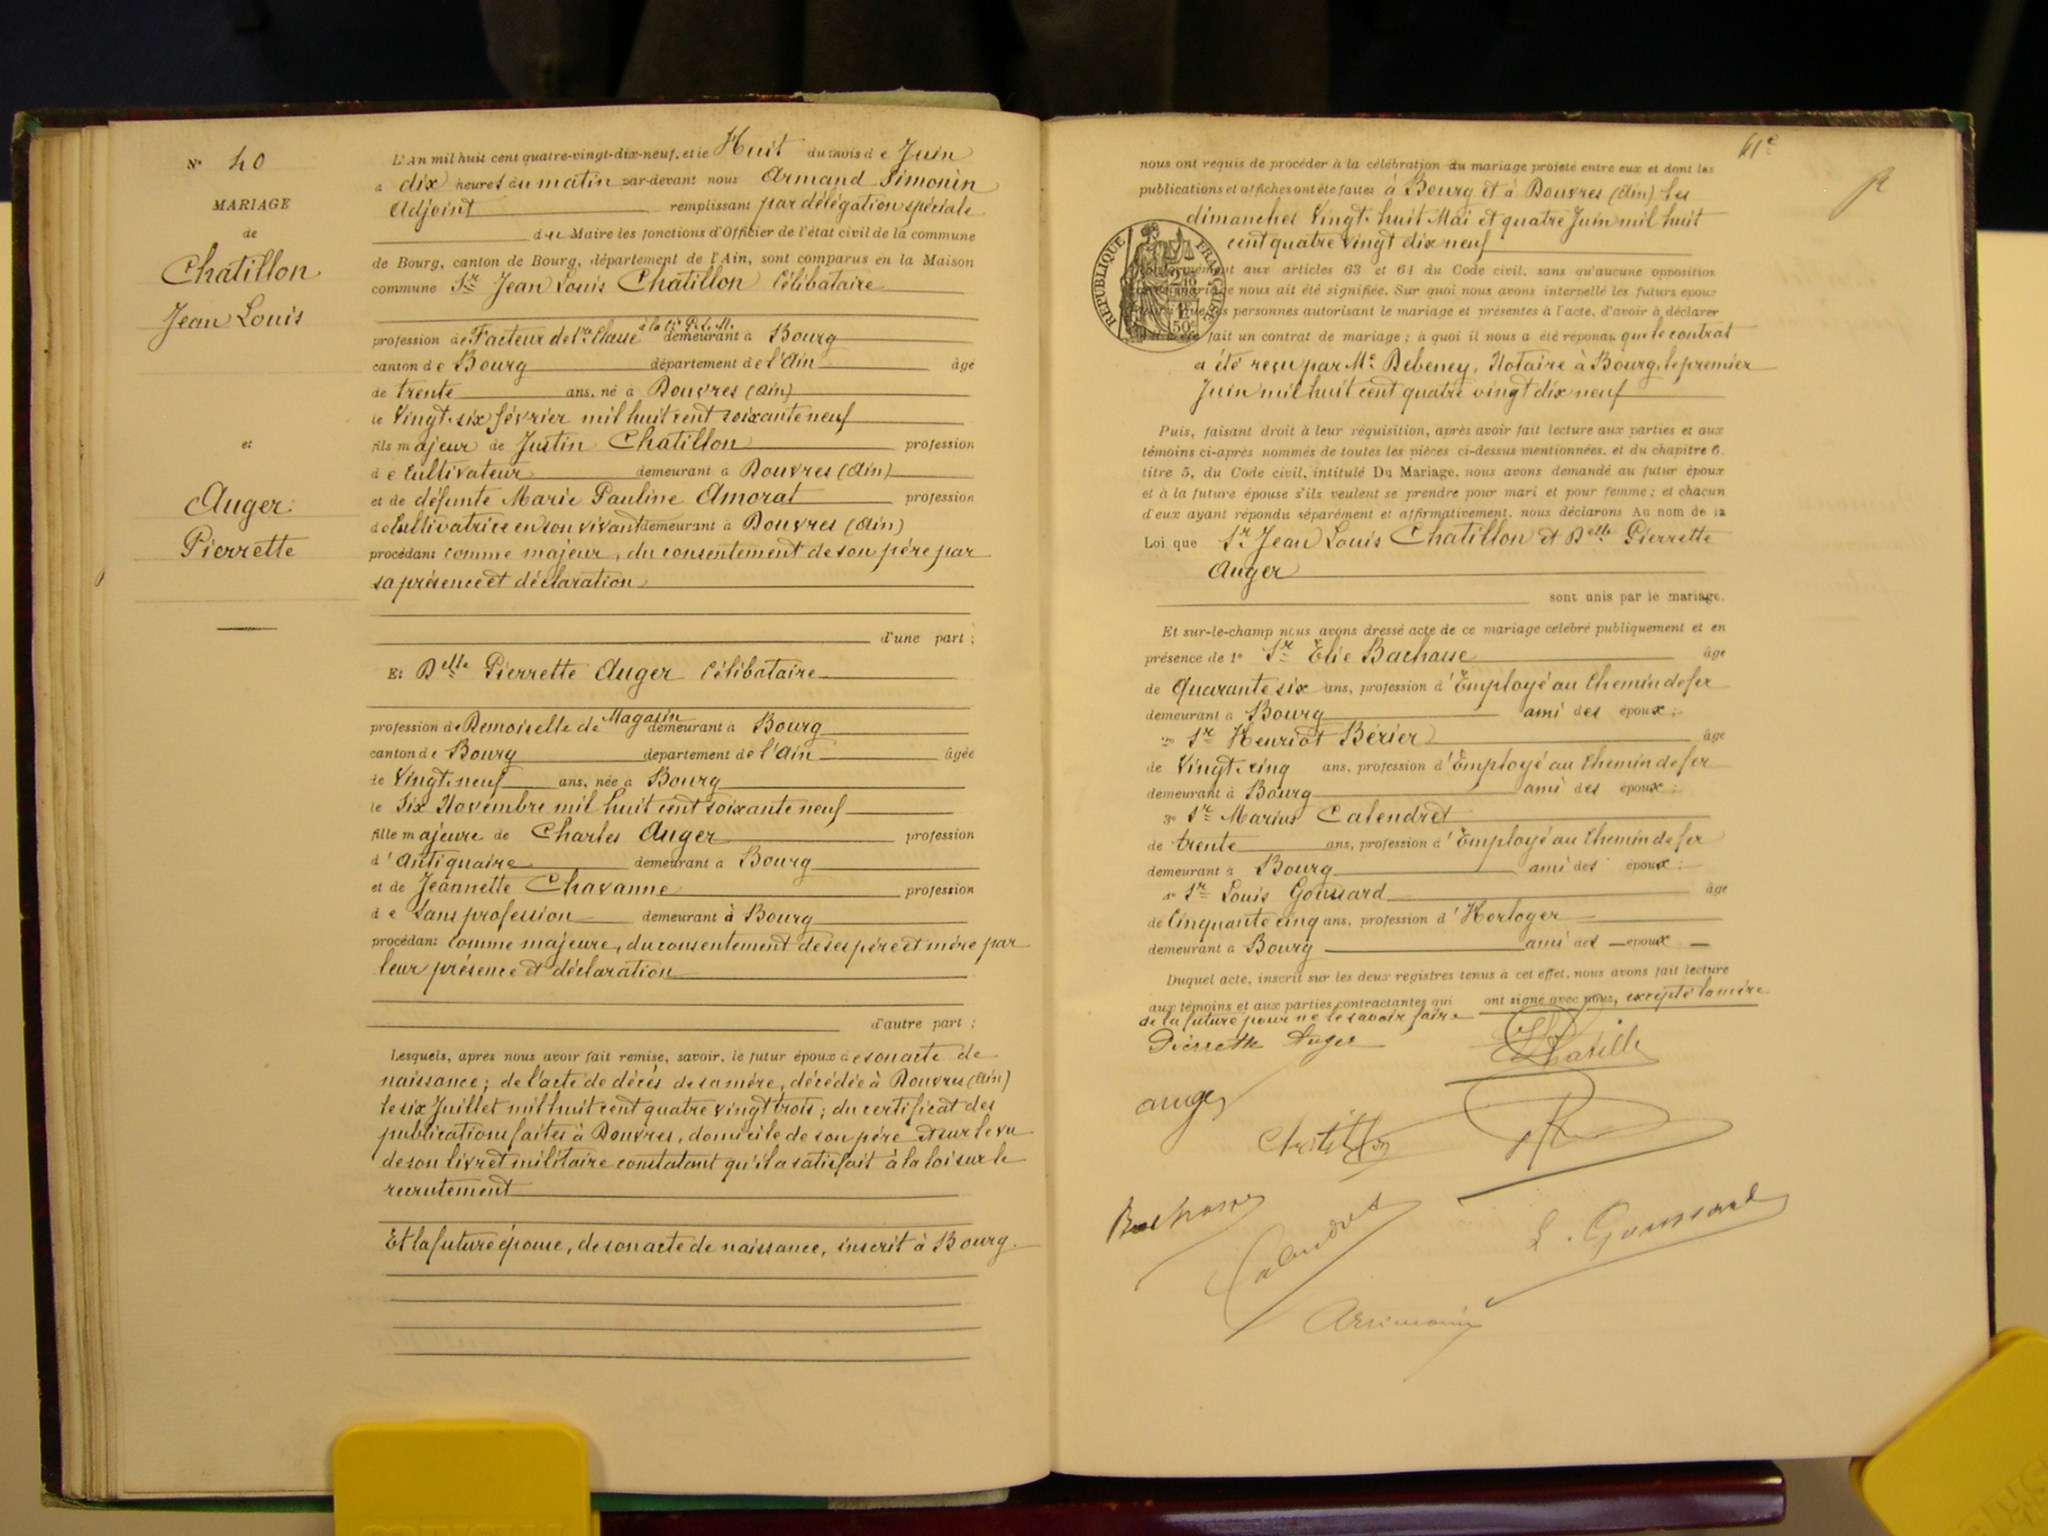 N° 40
MARIAGE
de
Chatillon
Jean Louis
et
Auger
Pierrette
L'An mil huit cent quatre-vingt-dix-neuf, et le Huit du mois de Juin
à dix heures du matin par-devant nous Armand Simonin
Adjoint remplissant par délégation spéciale
du Maire les fonctions d'Officier de l'état civil de la commune
de Bourg, canton de Bourg, département de l'Ain, sont comparus en la Maison
commune Sr Jean Louis Chatillon Célibataire
profession de Facteur de 1re Classe à la Cie P.L.M. demeurant à Bourg
canton de Bourg département de l'Ain âgé
de trente ans, né à Douvres (Ain)
le Vingt-six février mil huit cent soixante neuf
fils majeur de Justin Chatillon profession
de Cultivateur demeurant à Douvres (Ain)
et de défunte Marie Pauline Amorat profession
de Cultivatrice en son vivant demeurant à Douvres (Ain)
procédant comme majeur, du consentement de son père par
sa présence et déclaration
d'une part ;
Et Delle Pierrette Auger Célibataire
profession de Demoiselle de Magasin demeurant à Bourg
canton de Bourg département de l'Ain âgée
de Vingt-neuf ans, née à Bourg
le Six Novembre mil huit cent soixante neuf
fille majeure de Charles Auger profession
d'Antiquaire demeurant à Bourg
et de Jeannette Chavanne profession
de Sans profession demeurant à Bourg
procédant comme majeure, du consentement de ses père et mère par
leur présence et déclaration
d'autre part ;
Lesquels, après nous avoir fait remise, savoir, le futur époux de son acte de
naissance ; de l'acte de décès de sa mère, décédée à Douvres (Ain)
le six Juillet mil huit cent quatre vingt trois ; du certificat des
publications faites à Douvres, domicile de son père et sur le vu
de son livret militaire constatant qu'il a satisfait à la loi sur le
recrutement
Et la future épouse, de son acte de naissance, inscrit à Bourg.
61e
nous ont requis de procéder à la célébration du mariage projeté entre eux et dont les
publications et affiches ont été faites à Bourg et à Douvres (Ain) les
dimanches Vingt-huit Mai et quatre Juin mil huit
cent quatre vingt dix neuf
RÉPUBLIQUE FRANÇAISE
aux articles 63 et 64 du Code civil, sans qu'aucune opposition
nous ait été signifiée. Sur quoi nous avons interpellé les futurs époux
personnes autorisant le mariage et présentes à l'acte, d'avoir à déclarer
fait un contrat de mariage ; à quoi il nous a été répondu que le contrat
a été reçu par Me Debeney, Notaire à Bourg, le premier
Juin mil huit cent quatre vingt dix neuf
Puis, faisant droit à leur réquisition, après avoir fait lecture aux parties et aux
témoins ci-après nommés de toutes les pièces ci-dessus mentionnées, et du chapitre 6,
titre 5, du Code civil, intitulé Du Mariage, nous avons demandé au futur époux
et à la future épouse s'ils veulent se prendre pour mari et pour femme ; et chacun
d'eux ayant répondu séparément et affirmativement, nous déclarons Au nom de la
Loi que Sr Jean Louis Chatillon et Delle Pierrette
Auger
sont unis par le mariage.
Et sur-le-champ nous avons dressé acte de ce mariage célébré publiquement et en
présence de 1° Sr Élie Bachasse âgé
de Quarante six ans, profession d'Employé au Chemin de fer
demeurant à Bourg ami des époux ;
2° Sr Henriot Bérier âgé
de Vingt-cinq ans, profession d'Employé au Chemin de fer
demeurant à Bourg ami des époux ;
3° Sr Marius Calendret
de trente ans, profession d'Employé au Chemin de fer
demeurant à Bourg ami des époux ;
4° Sr Louis Goussard âgé
de Cinquante cinq ans, profession d'Horloger
demeurant à Bourg ami des époux
Duquel acte, inscrit sur les deux registres tenus à cet effet, nous avons fait lecture
aux témoins et aux parties contractantes qui ont signé avec nous, excepté la mère
de la future pour ne le savoir faire
Pierrette Auger
Chatillon
auger
Chatillon
Bachasse
Calendret
L. Goussard
Arsimonin